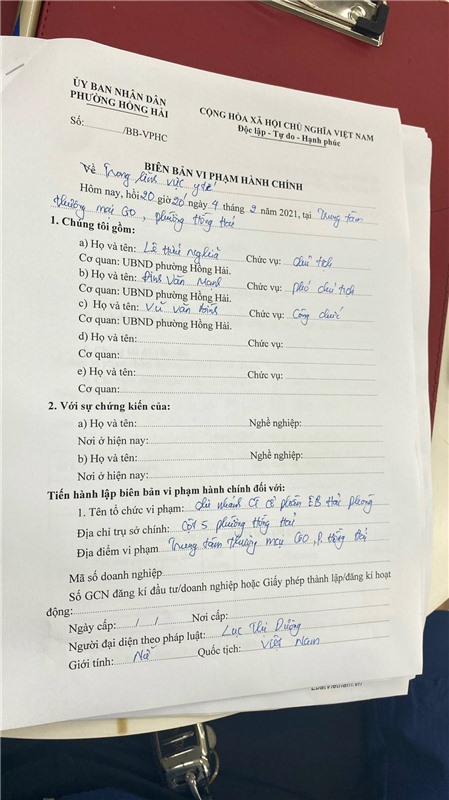 ỦY BAN NHÂN DÂN
PHƯỜNG HỒNG HẢI
CỘNG HÒA XÃ HỘI CHỦ NGHĨA VIỆT NAM
Độc lập - Tự do - Hạnh phúc
Số:............/BB-VPHC
BIÊN BẢN VI PHẠM HÀNH CHÍNH
Về Trong lĩnh vực y tế
Hôm nay, hồi 20 giờ 20 ngày 4 tháng 2 năm 2021, tại Trung tâm
thương mại GO, phường Hồng Hải
1. Chúng tôi gồm:
a) Họ và tên: Lê Hữu Nghĩa Chức vụ: Chủ tịch
Cơ quan: UBND phường Hồng Hải.
b) Họ và tên: Đinh Văn Mạnh Chức vụ: Phó chủ tịch
Cơ quan: UBND phường Hồng Hải.
c) Họ và tên: Vũ Văn Chức vụ: Công chức
Cơ quan: UBND phường Hồng Hải.
d) Họ và tên: Chức vụ:
Cơ quan:
e) Họ và tên: Chức vụ:
Cơ quan:
2. Với sự chứng kiến của:
a) Họ và tên: Nghề nghiệp:
Nơi ở hiện nay:
b) Họ và tên: Nghề nghiệp:
Nơi ở hiện nay:
Tiến hành lập biên bản vi phạm hành chính đối với:
1. Tên tổ chức vi phạm: chi nhánh CT cổ phần EB Hải Phòng
Địa chỉ trụ sở chính: Cột 5 phường Hồng Hải
Địa điểm vi phạm Trung tâm thương mại GO, P. Hồng Hải
Mã số doanh nghiệp
Số GCN đăng kí đầu tư/doanh nghiệp hoặc Giấy phép thành lập/đăng kí hoạt
động:
Ngày cấp: / / Nơi cấp:
Người đại diện theo pháp luật: Lục Thị Dưỡng
Giới tính: Nữ Quốc tịch: Việt Nam